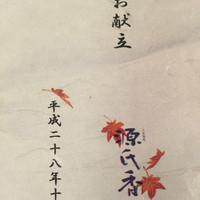 お献立
源氏香
平成二十八年十